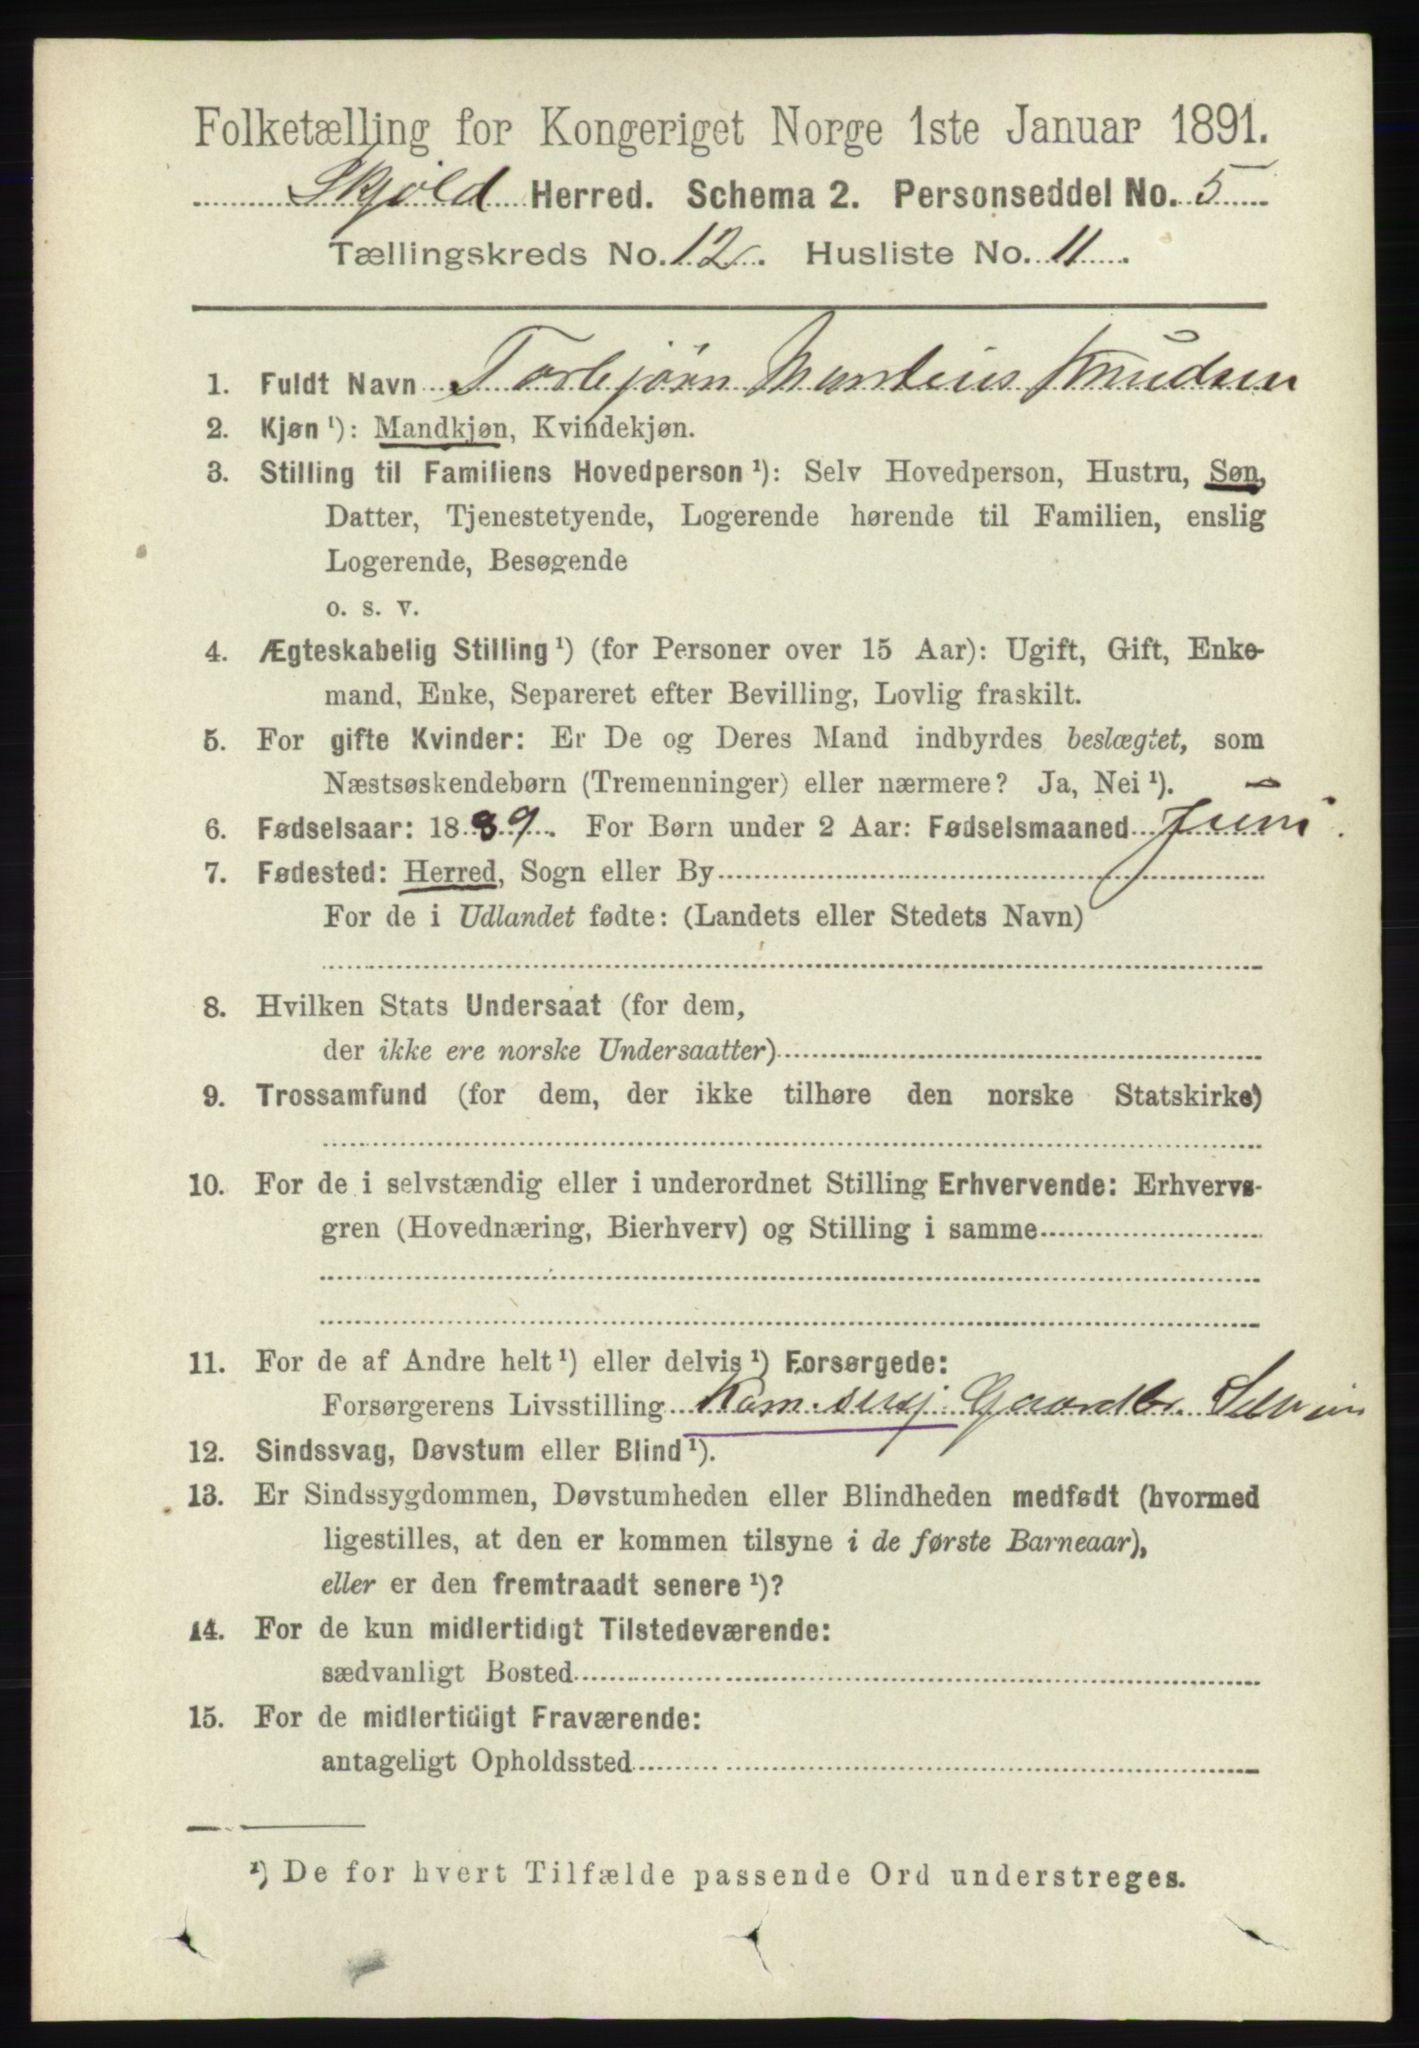 Folketælling for Kongeriget Norge 1ste Januar 1891.
Skjold Herred. Schema 2. Personseddel No. 5
Tællingskreds No. 12. Husliste No. 11.
1. Fuldt Navn Torbjørn Martius Knudsen
2. Kjøn ¹): Mandkjøn, Kvindekjøn.
3. Stilling til Familiens Hovedperson ¹): Selv Hovedperson, Hustru, Søn,
Datter, Tjenestetyende, Logerende hørende til Familien, enslig
Logerende, Besøgende
o. s. v.
4. Ægteskabelig Stilling ¹) (for Personer over 15 Aar): Ugift, Gift, Enke-
mand, Enke, Separeret efter Bevilling, Lovlig fraskilt.
5. For gifte Kvinder: Er De og Deres Mand indbyrdes beslægtet, som
Næstsøskendebørn (Tremenninger) eller nærmere? Ja, Nei ¹).
6. Fødselsaar: 1889. For Børn under 2 Aar: Fødselsmaaned Juni.
7. Fødested: Herred, Sogn eller By
For de i Udlandet fødte: (Landets eller Stedets Navn)
8. Hvilken Stats Undersaat (for dem,
der ikke ere norske Undersaatter)
9. Trossamfund (for dem, der ikke tilhøre den norske Statskirke)
10. For de i selvstændig eller i underordnet Stilling Erhvervende: Erhvervs-
gren (Hovednæring, Bierhverv) og Stilling i samme
11. For de af Andre helt ¹) eller delvis ¹) Forsørgede:
Forsørgerens Livsstilling Kom. sersj Gaardbr.
12. Sindssvag, Døvstum eller Blind ¹).
13. Er Sindssygdommen, Døvstumheden eller Blindheden medfødt (hvormed
ligestilles, at den er kommen tilsyne i de første Barneaar),
eller er den fremtraadt senere ¹)?
14. For de kun midlertidigt Tilstedeværende:
sædvanligt Bosted
15. For de midlertidigt Fraværende:
antageligt Opholdssted
¹) De for hvert Tilfælde passende Ord understreges.